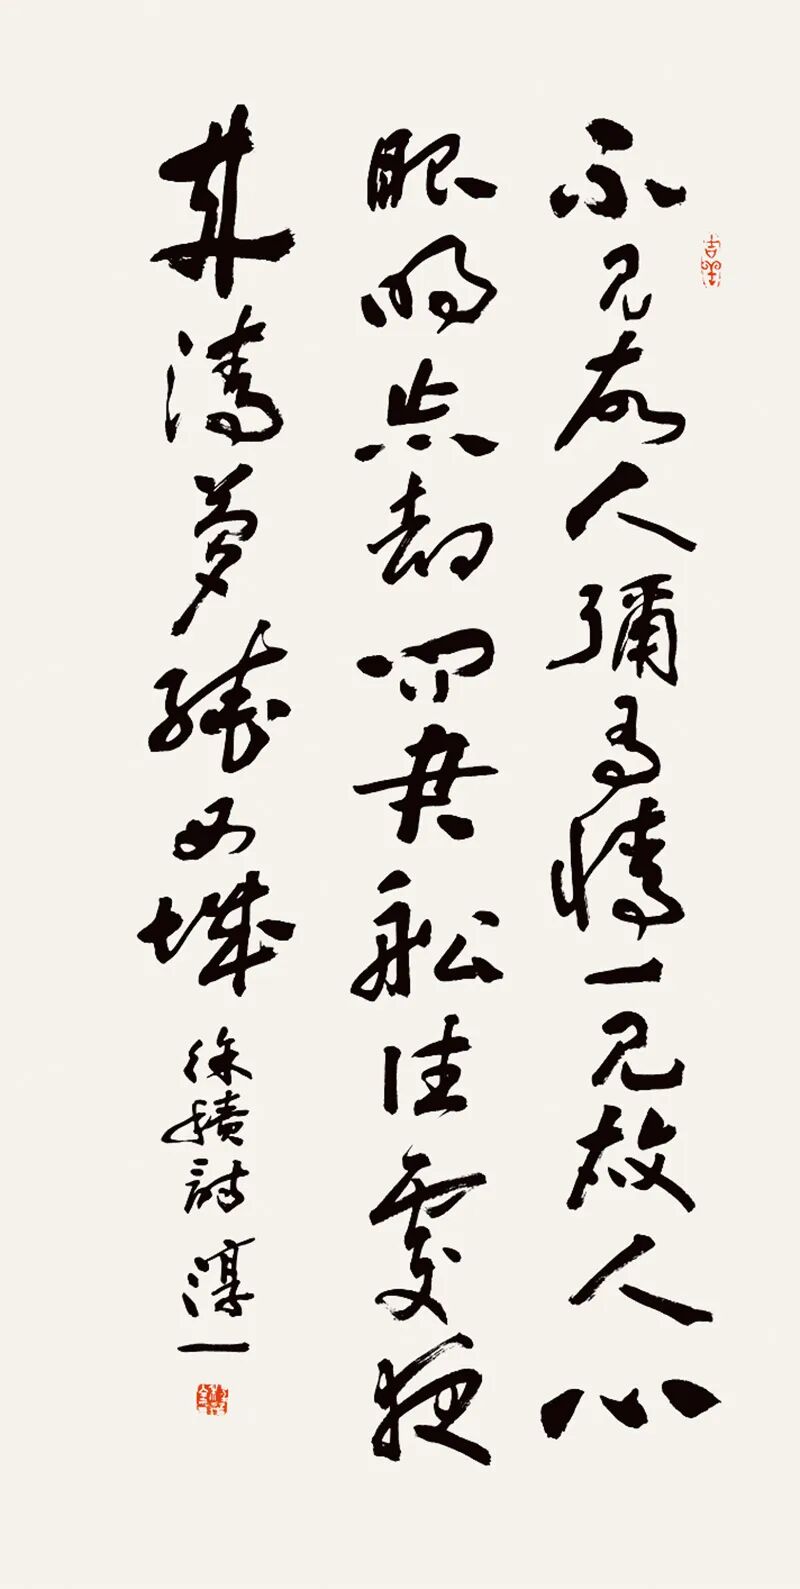 不見故人彌有情一見故人心
眼明忘却問君船住處夜
來清夢繞西城
徐積詩 淳一